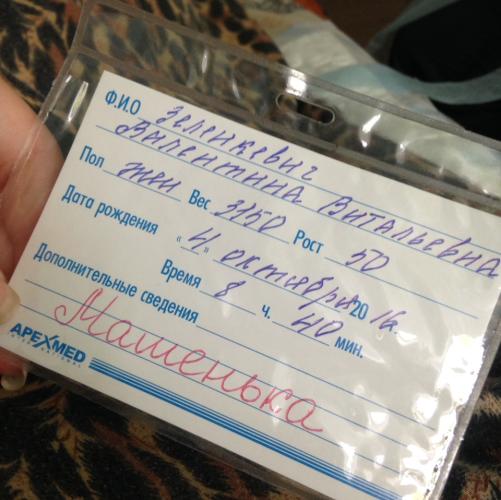 Ф.И.О Зеленкевич
Валентина Витальевна
Пол жен Вес 3150 Рост 50
Дата рождения «4» октября 2016
Время 8 ч. 40 мин.
Дополнительные сведения
Машенька
APEXMED
INTERNATIONAL